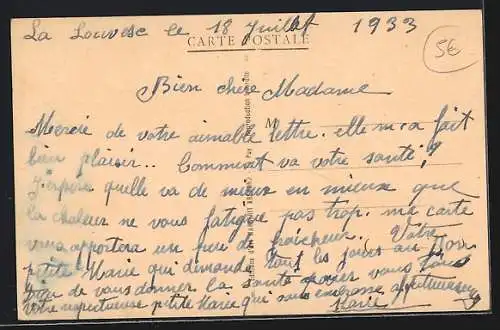 La Louvesc ce 18 Juillet 1933
CARTE POSTALE
5€
Bien chère Madame
M
Mercie de votre aimable lettre. elle m'a fait
bien plaisir.. Comment va votre santé!
J'espère quelle va de mieux en mieux que
la chaleur ne vous fatigue pas trop. ma carte
vous apportera un peu de fraicheur. Votre
petite Marie qui demande tout les jours au Bon
de vous donner la santé vous
votre respectueuse petite Marie qui vous embrasse affectueusement
Marie